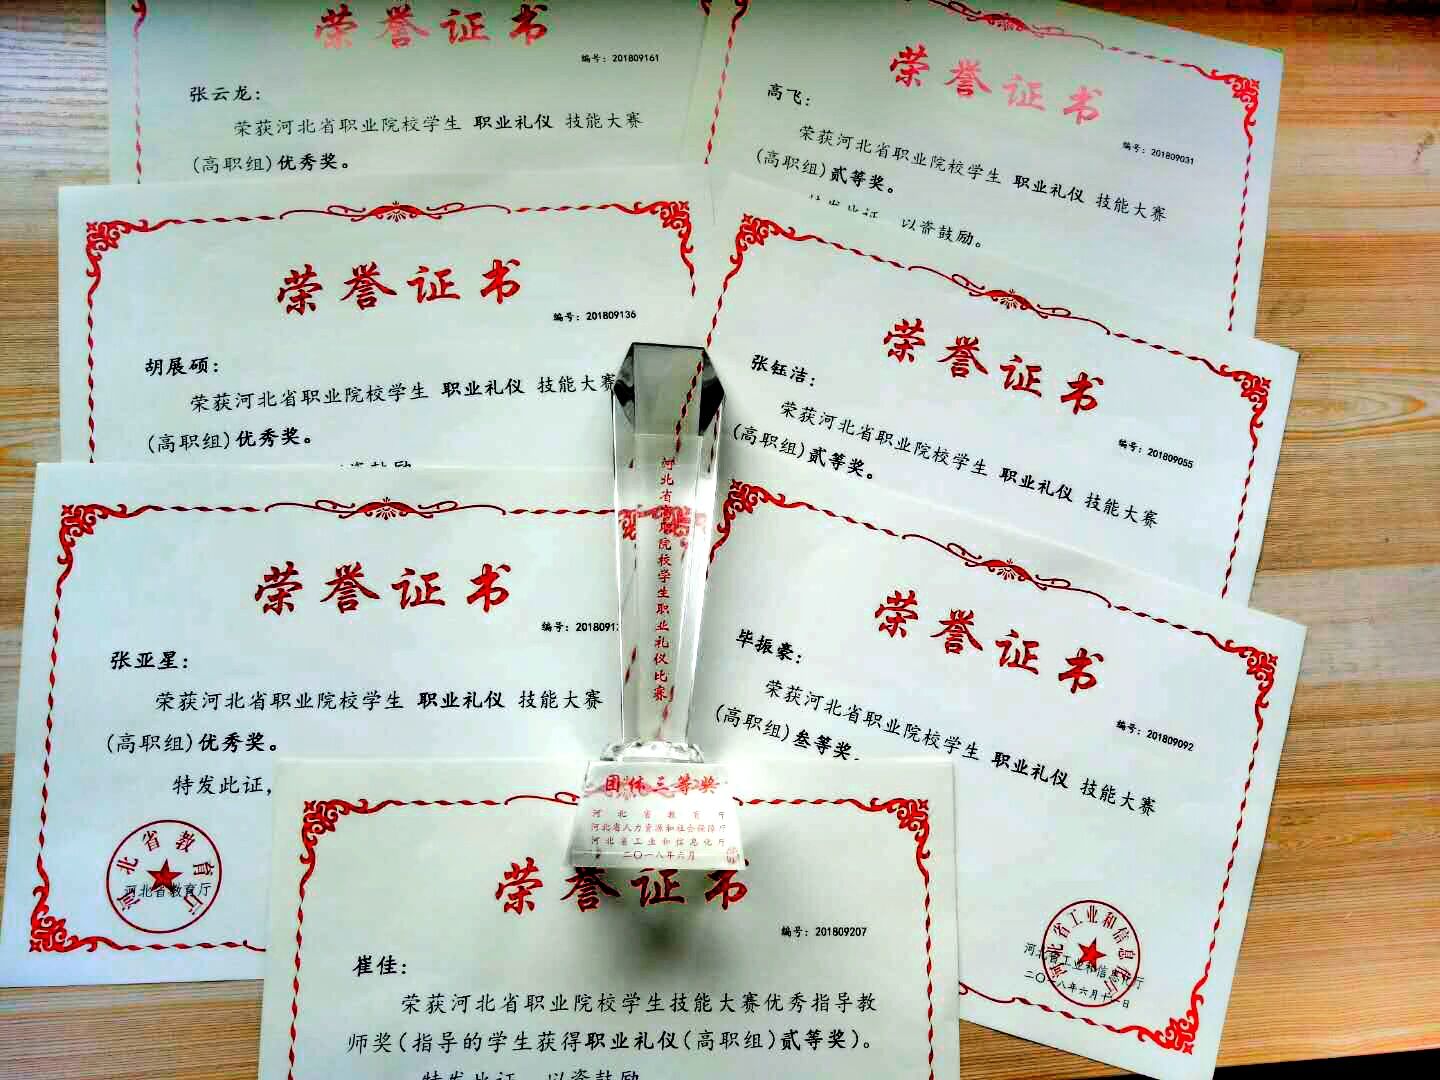 荣誉证书
编号：201809161
张云龙：
荣获河北省职业院校学生 职业礼仪 技能大赛
(高职组)优秀奖。
荣誉证书
编号：201809031
高飞：
荣获河北省职业院校学生 职业礼仪 技能大赛
(高职组)贰等奖。
特发此证，以资鼓励。
荣誉证书
编号：201809136
胡展硕：
荣获河北省职业院校学生 职业礼仪 技能大赛
(高职组)优秀奖。
资鼓励
荣誉证书
编号：201809055
张钰洁：
荣获河北省职业院校学生 职业礼仪 技能大赛
(高职组)贰等奖。
荣誉证书
编号：2018091
张亚星：
荣获河北省职业院校学生 职业礼仪 技能大赛
(高职组)优秀奖。
特发此证，
河北省教育厅
河北省教育厅
荣誉证书
编号：201809092
毕振豪：
荣获河北省职业院校学生 职业礼仪 技能大赛
(高职组)叁等奖.
河北省工业和信息化厅
河北省工业和信息化厅
二〇一八年六月十一日
河北省高职院校学生职业礼仪比赛
团体三等奖
河北省教育厅
河北省人力资源和社会保障厅
河北省工业和信息化厅
二〇一八年六月
荣誉证书
编号：201809207
崔佳：
荣获河北省职业院校学生技能大赛优秀指导教
师奖(指导的学生获得职业礼仪(高职组)贰等奖)。
特发此证，以资鼓励